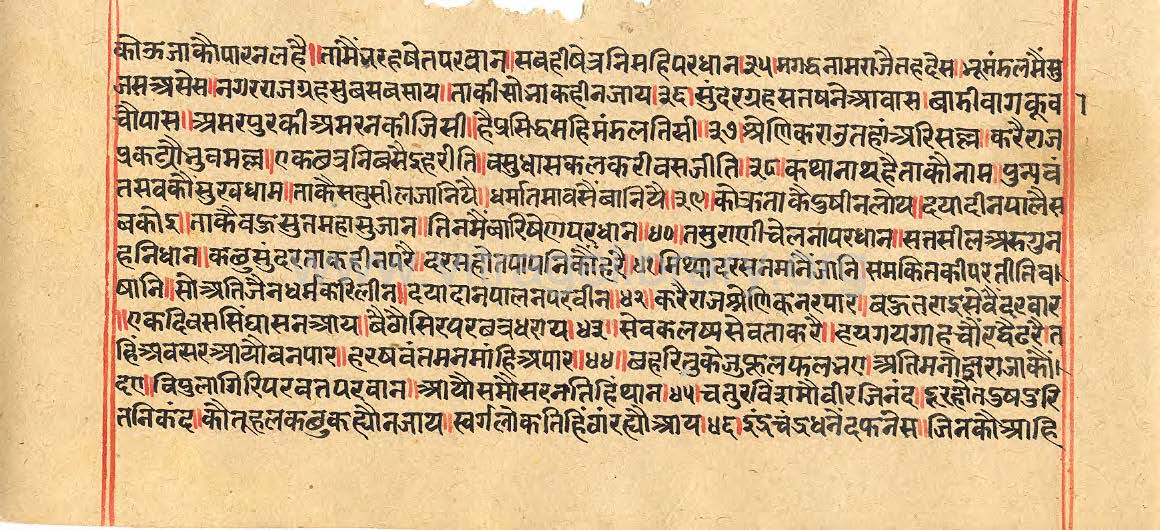 कोऊ जाकौ पार न लहै॥ तामैं भरह षेत परवान॥ सब ही षेत्रनि महि परधान ३५ मगद्ध नाम राजै तह देस॥ भू मंडल मैं सु
जस असेस॥ नगर राजग्रह सुबस बसाय॥ ताकी सोभा कही न जाय॥३६॥ सुंदर ग्रह सतषनै आवास॥ बाडी बाग कूव
चौपास॥ अमरपुर की अमरन की जिसी॥ है प्रसिद्ध महि मंडल तिसी॥३७॥ श्रेणिक रानु तहां अरि सल्ल॥ करै राज
प्रकट्यौ भुव मल्ल॥ एक छत्र निबसै इह रीति॥ वसुधा सकल करी वस जीति॥३८॥ कथा नाथ है ताकौ नाम॥ पुन्यवं
त सबकौं सुखधाम॥ ताकै सत्रुसील जानियै॥ धर्मातमा वसै बानियै॥३९॥ कोऊ ताकै दुषी न लोय॥ दया दीन पालै स
ब कोइ॥ ताकै बहु सुत महा सुजान॥ तिन मैं बारिषेण परधान॥४०॥ तसु राणी चेलना परधान॥ सत सील अरु गुन
ह निधान॥ कछु सुंदरता कही न परै॥ दरस होत पापनि कौं हरै॥४१ मिथ्या दरसन मनै जानि समकित की परतीति व
षानि॥ सो अति जैन धर्म करि लीन॥ दया दान पालन परवीन॥४२॥ करै राज श्रेणिक नर पार॥ बहुत राइ सेवैं दरबार
॥ एक दिवस सिंघासन आय॥ बैठौ सिर पर छत्र धराय॥४३॥ सेवक लष्य सेवता करै॥ हय गय गाह चौंर बे ढरै॥ त
हिं अवसर आयौ बनपार॥ हरषवंत मन मांहि अपार॥४४॥ बहु रितु के जु फूल फल भए॥ अति मनोज्ञ राजा कौं
दए॥ विपुलागिरि परबत परवान॥ आयौ समौसरन तिहिं थान॥४५॥ चतुरविंशमौ वीर जिनंद॥ दूर होत दुष दुरि
त निकंद॥ कौतूहल कछु कह्यौ न जाय॥ स्वर्गलोक तिहिं वां रह्यौ आय॥४६॥ इंद्र चंद्र धनेंद फनेस॥ जिनकौ आहि